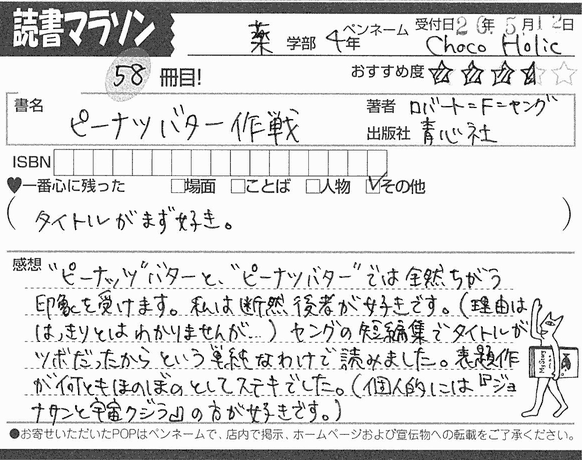 読書マラソン
薬 学部 4年 ペンネーム Choco Holic 受付日 20年 5月 12日
58 冊目!
おすすめ度
書名 ピーナツバター作戦
著者 ロバート=F=ヤング
出版社 青心社
ISBN
♥一番心に残った □場面 □ことば □人物 ☑その他
(タイトルがまず好き。)
感想 "ピーナッツ"バターと、"ピーナツバター"では全然ちがう
印象を受けます。私は断然後者が好きです。(理由は
はっきりとはわかりませんが…)ヤングの短編集でタイトルが
ツボだったからという単純なわけで読みました。表題作
が何ともほのぼのとしてステキでした。(個人的には『ジョ
ナサンと宇宙クジラ』の方が好きです。)
●お寄せいただいたPOPはペンネームで、店内で掲示、ホームページおよび宣伝物への転載をご了承ください。